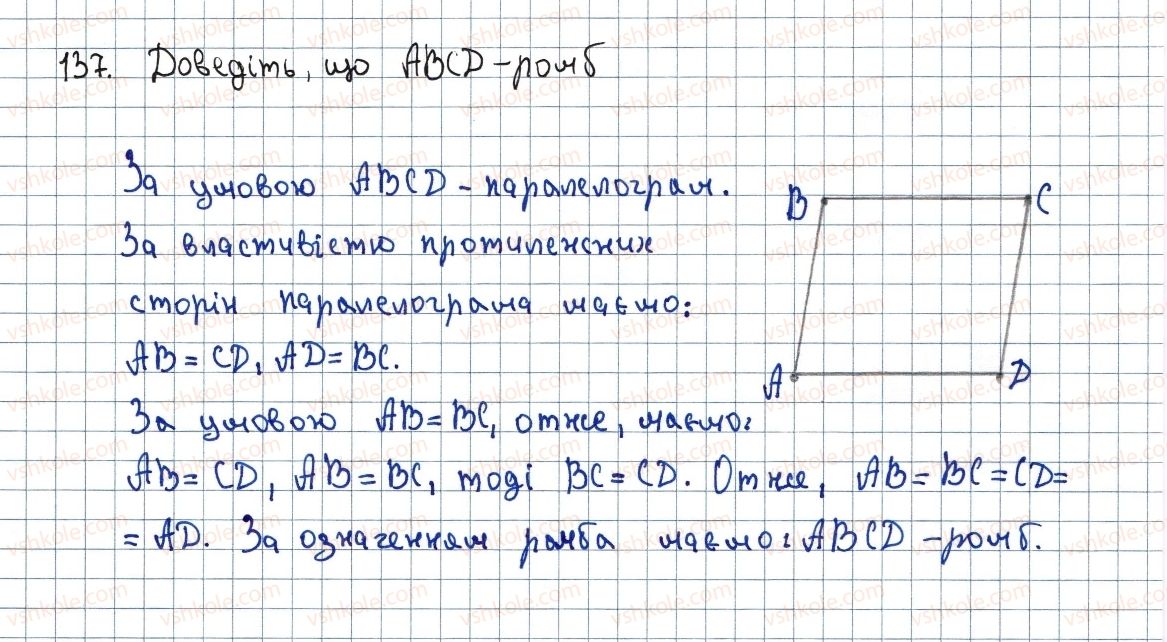 137. Доведіть, що ABCD - ромб
За умовою ABCD - паралелограм.
За властивістю протилежних
сторін паралелограма маємо:
AB = CD, AD = BC.
За умовою AB = BC, отже, маємо:
AB = CD, AB = BC, тоді BC = CD. Отже, AB = BC = CD =
= AD. За означенням ромба маємо: ABCD - ромб.
B
C
A
D
vshkole.com